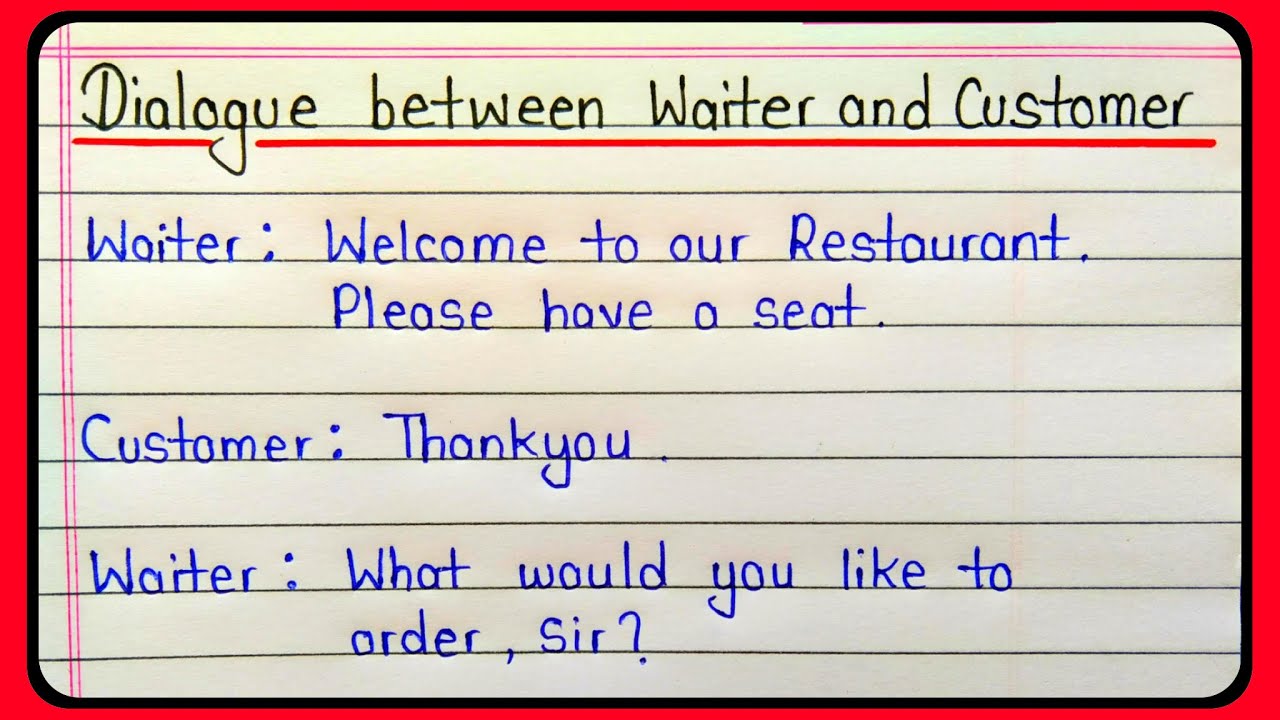 Dialogue between Waiter and Customer
Waiter: Welcome to our Restaurant.
Please have a seat.
Customer: Thankyou.
Waiter: What would you like to
order, Sir?